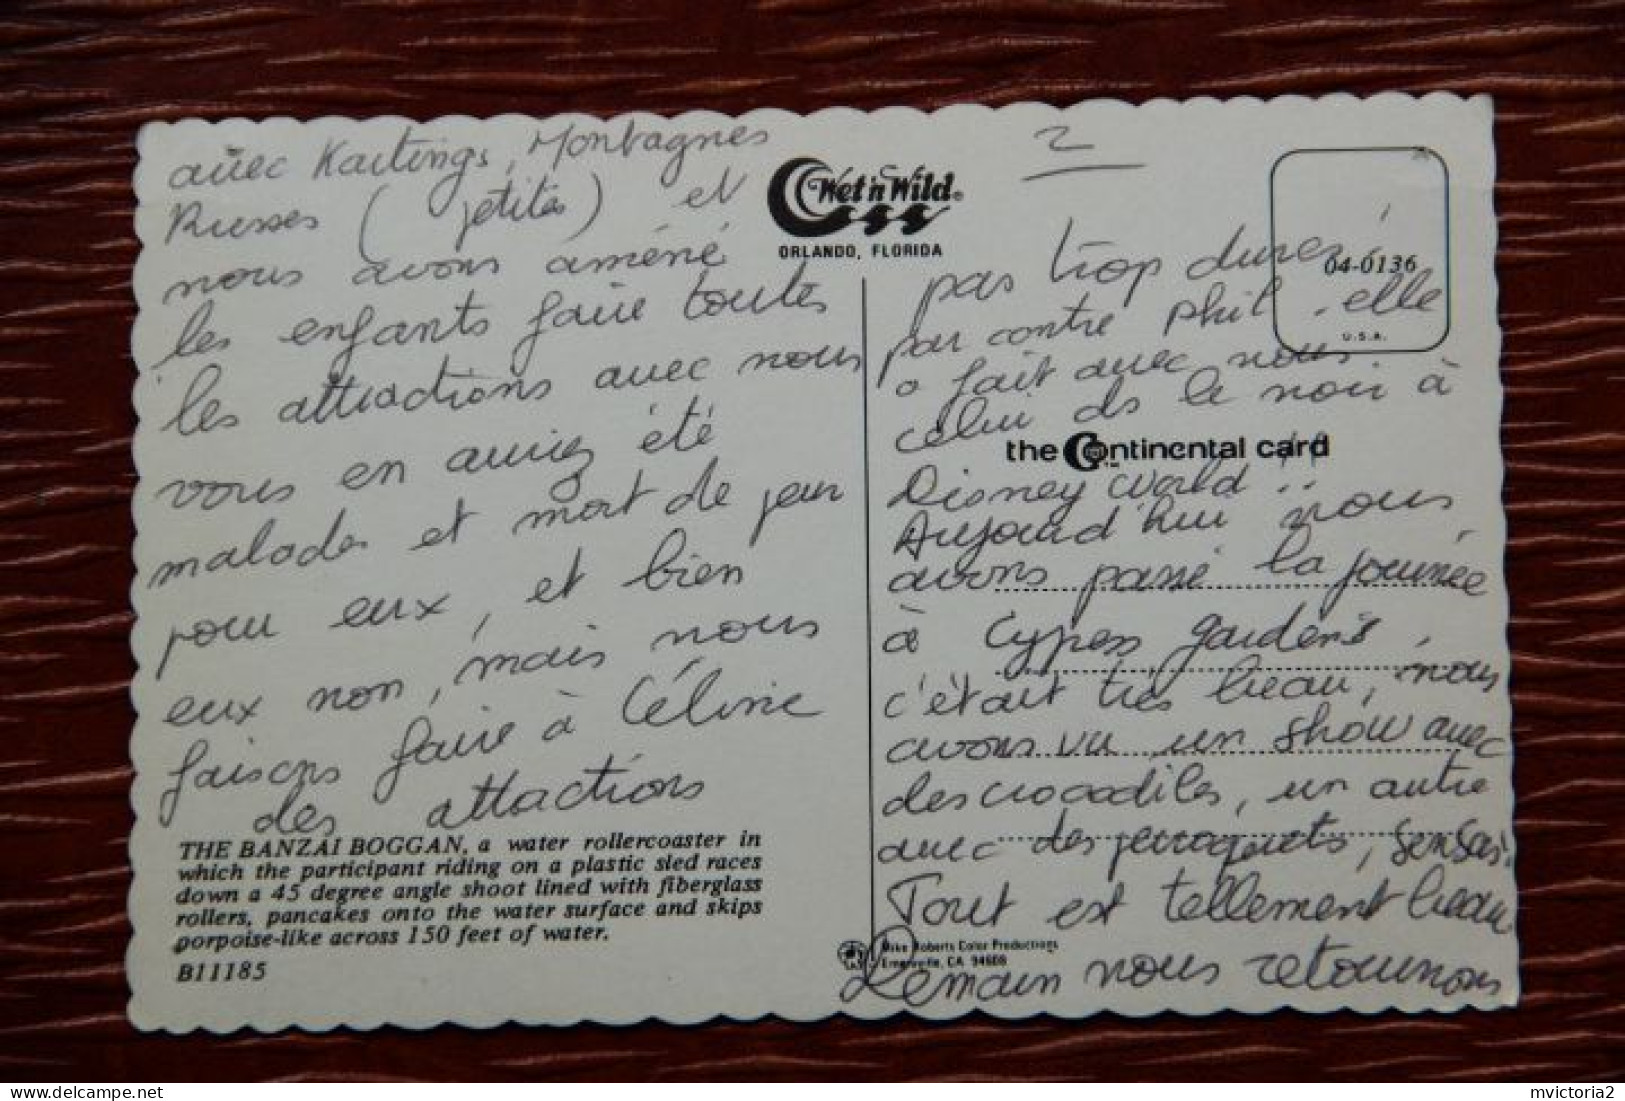 avec Kartings, Montagnes
Russes (petites) et
nous avons améné
les enfants faire toutes
les attractions avec nous
vous en auriez été
malades et mort de peur
pour eux, et bien
eux non, mais nous
faisons faire à Céline
des attractions
THE BANZAI BOGGAN, a water rollercoaster in
which the participant riding on a plastic sled races
down a 45 degree angle shoot lined with fiberglass
rollers, pancakes onto the water surface and skips
porpoise-like across 150 feet of water.
B11185
Wet'n Wild®
ORLANDO, FLORIDA
2
04-0136
U.S.A.
pas trop dures,
par contre Phil. elle
a fait avec nous
celui ds le noir à
the Continental card
Disney World!!
Aujourd'hui nous
avons passé la journée
à Cypess gardens,
c'était très beau, nous
avons vu un show avec
des crocodiles, un autre
avec des perroquets, sensas.
Tout est tellement beau.
Mike Roberts Color Productions
Emeryville, CA 94608
Demain nous retournons
mvictoria2